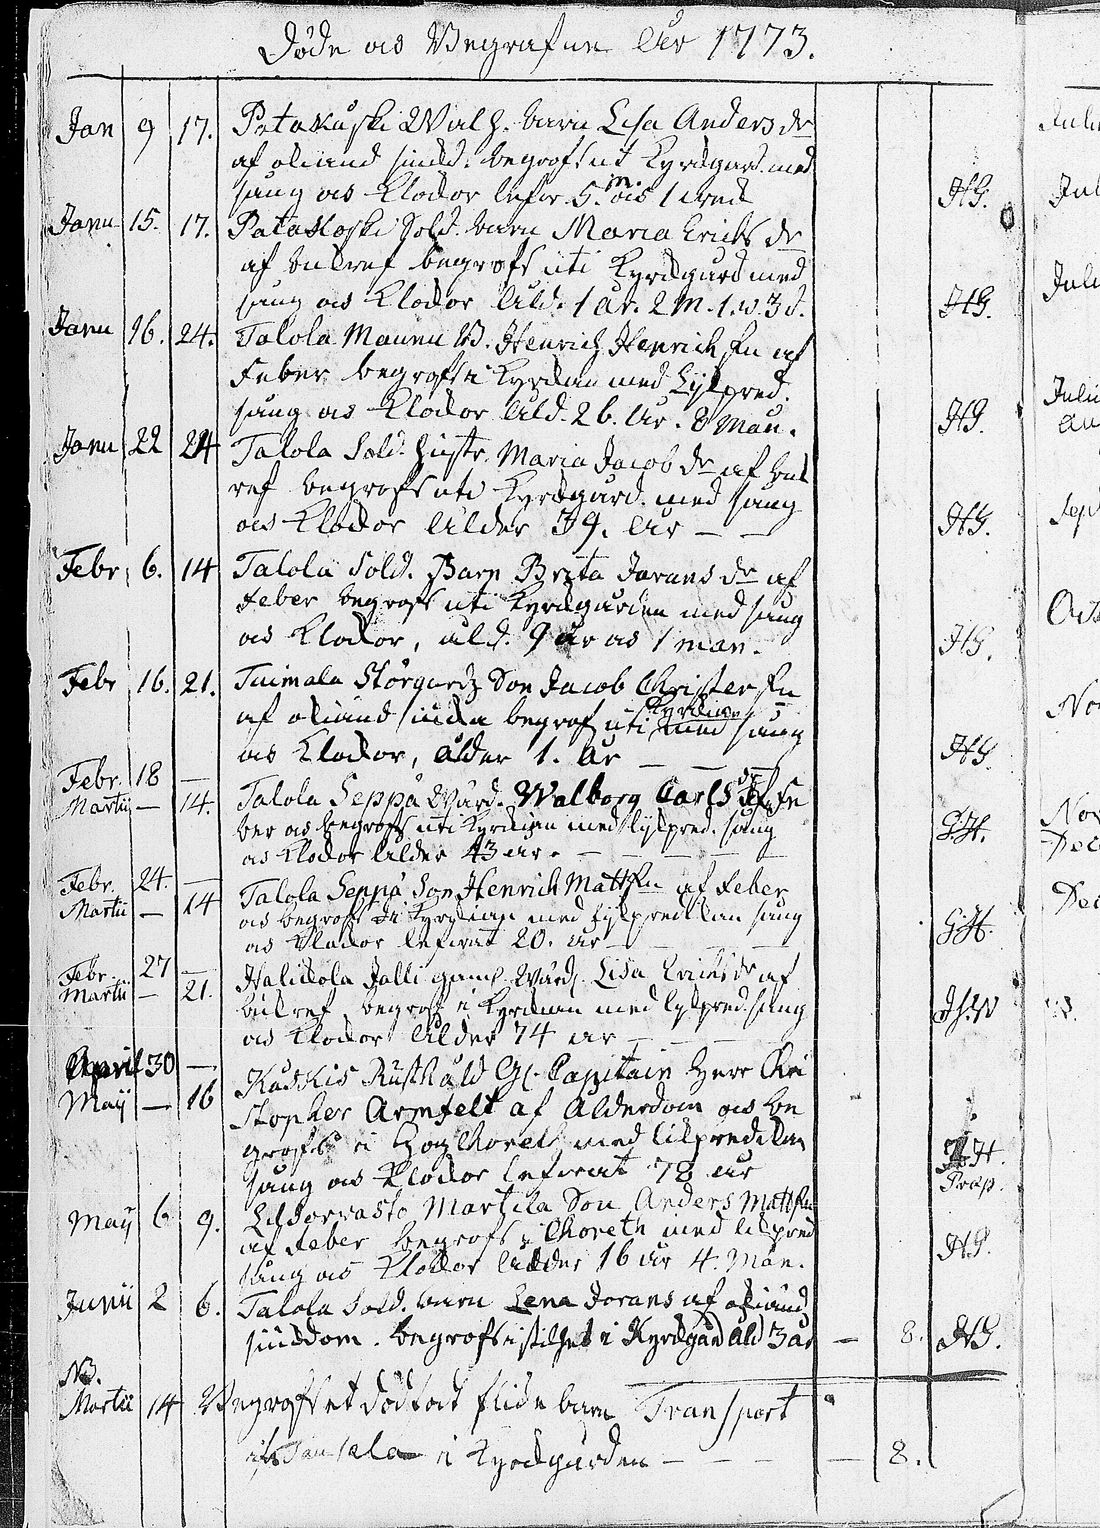 Døde och Begrafne Åhr 1773.
Jan 9 17. Patakoski Walh. barn Lisa Anders dr
af okiänd siukd. begrofs ut Kyrckgård. med
sång och Klockor lefw. 5. m. och 1 wec HG.
Janu 15. 17. Patakoski Sold. barn Maria Erichs dr
af bulref begrofs uti Kyrckgård med
sång och Klockor Åld. 1 år. 2 M. 1. w. 3 d. HG.
Janu 16. 24. Talola Maunu B. Henrich Henrich Sn af
Feber begrofs i Kyrckan med Lijkpred.
sång och Klockor Åld. 26. År. 8 Mån. HG.
Janu 22 24 Talola Sold. Hustr. Maria Jacob dr af bul
ref begrofs uti Kyrckgård. med sång
och Klockor Ålder 39. År - - HG.
Febr 6. 14 Talola Sold. Barn Brita Jörans dr af
Feber begrofs uti Kyrckgården med sång
och Klockor, åld. 9 år och 1 mån. HG.
Febr 16. 21. Tuimala Storgårdz Son Jacob Christer Sn
af okiänd siuka begrof uti Kyrckan med sång
och Klockor, ålder 1. År - - - HG.
Febr. 18 —
Martii — 14. Talola Seppä Wärd. Walborg Carls dr af Fe
ber och begrofs uti Kyrckan med lijkpred. sång
och Klockor Ålder 43 år. - - - - GH.
Febr. 24. —
Martii — 14 Talola Seppä Son Henrich Matts Sn af Feber
och begrofs i Kyrckan med lijkpredikan sång
och Klockor lefwat 20. år - - - GH.
Febr. 27 —
Martii — 21. Halickola Jalli gaml. Wärd. Lisa Erichs dr af
bulref begrofs i Kyrckan med lijkpred. sång
och Klockor Ålder 74 år - - -
April 30 —
Maij — 16 Kuskis Rusthåld Gl. Capitain Herr Chri
stopher Armfelt af Ålderdom och be
grofs i Hög Choret med likpredikan
sång och Klockor lefwat 78 år HH. Præp.
Maij 6 9. Martila Son Anders Matts Sn
af Feber begrofs i Choreth med likpred
sång och Klockor Ålder 16 år 4. Mån. HG.
Junii 2 6. Talola Sold. barn Lena Jörans af okiänd
siukdom. begrofs i stilhet i Kyrckgård åld 3 år — 8. HG.
NB.
Martii 14 Begrofs et dödfödt flicke barn Transport
ifr. i Kyrckgården - - - — 8.
Julii
Jul
Juli
Julii
Au
Sep
Oct
No
Nov
Dec
Dec